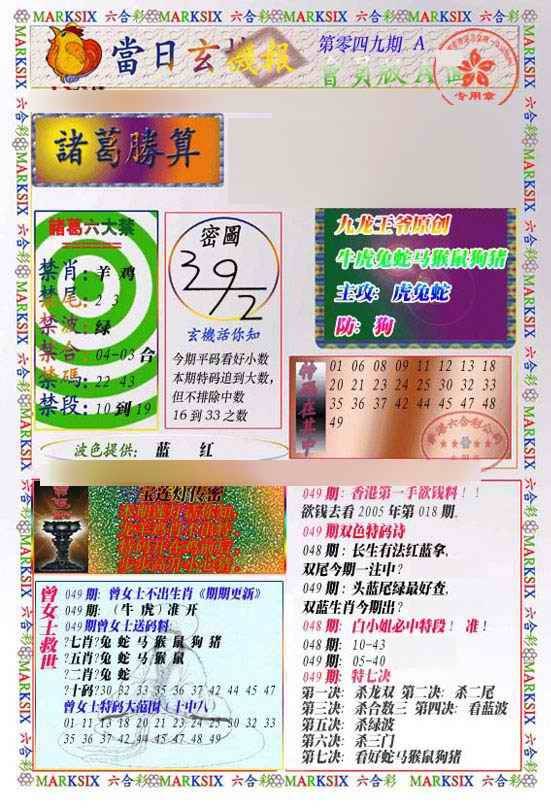 MARKSIX 六合彩 MARKSIX 六合彩 MARKSIX 六合彩 MARKSIX
當日玄機報
第零四九期 A
會員版A世
专用章
諸葛勝算
諸葛六大禁
禁肖：羊 鸡
禁尾：2 3
禁波：绿
禁合：04-03合
禁碼：22 43
禁段：10 到 19
密圖
39
2
玄機话你知
今期平码看好小数
本期特码追到大数，
但不排除中数
16 到 33 之数
九龙王爷原创
牛虎兔蛇马猴鼠狗猪
主攻：虎兔蛇
防：狗
01 06 08 09 11 12 13 18
20 21 23 24 25 30 32 33
35 36 37 42 44 45 47 48
49
波色提供： 蓝 红
宝莲灯传密
曾女士救世
049 期：曾女士不出生肖《期期更新》
049 期：（牛 虎）准 开
049 期曾女士送码料：
?七肖?兔 蛇 马 猴 鼠 狗 猪
?五肖?兔 蛇 马 猴 鼠
?二肖?兔 蛇
?十码?30 32 33 35 36 37 42 44 45 47
曾女士特码大范围（十中八）
01 11 13 18 20 21 23 24 25 30 32 33
35 36 37 42 44 45 47 48 49
049 期：香港第一手欲钱料！！
欲钱去看 2005 年第 018 期.
049 期双色特码诗
048 期：长生有法红蓝拿，
双尾今期一注中?
049 期：头蓝尾绿最好查，
双蓝生肖今期出?
048 期：白小姐必中特段！ 准！
048 期： 10-43
049 期： 05-40
049 期： 特七决
第一决：杀龙双 第二决：杀二尾
第三决：杀合数三 第四决：看蓝波
第五决：杀绿波
第六决：杀三门
第七决：看好蛇马猴鼠狗猪
MARKSIX 六合彩 MARKSIX 六合彩 MARKSIX 六合彩 MARKSIX